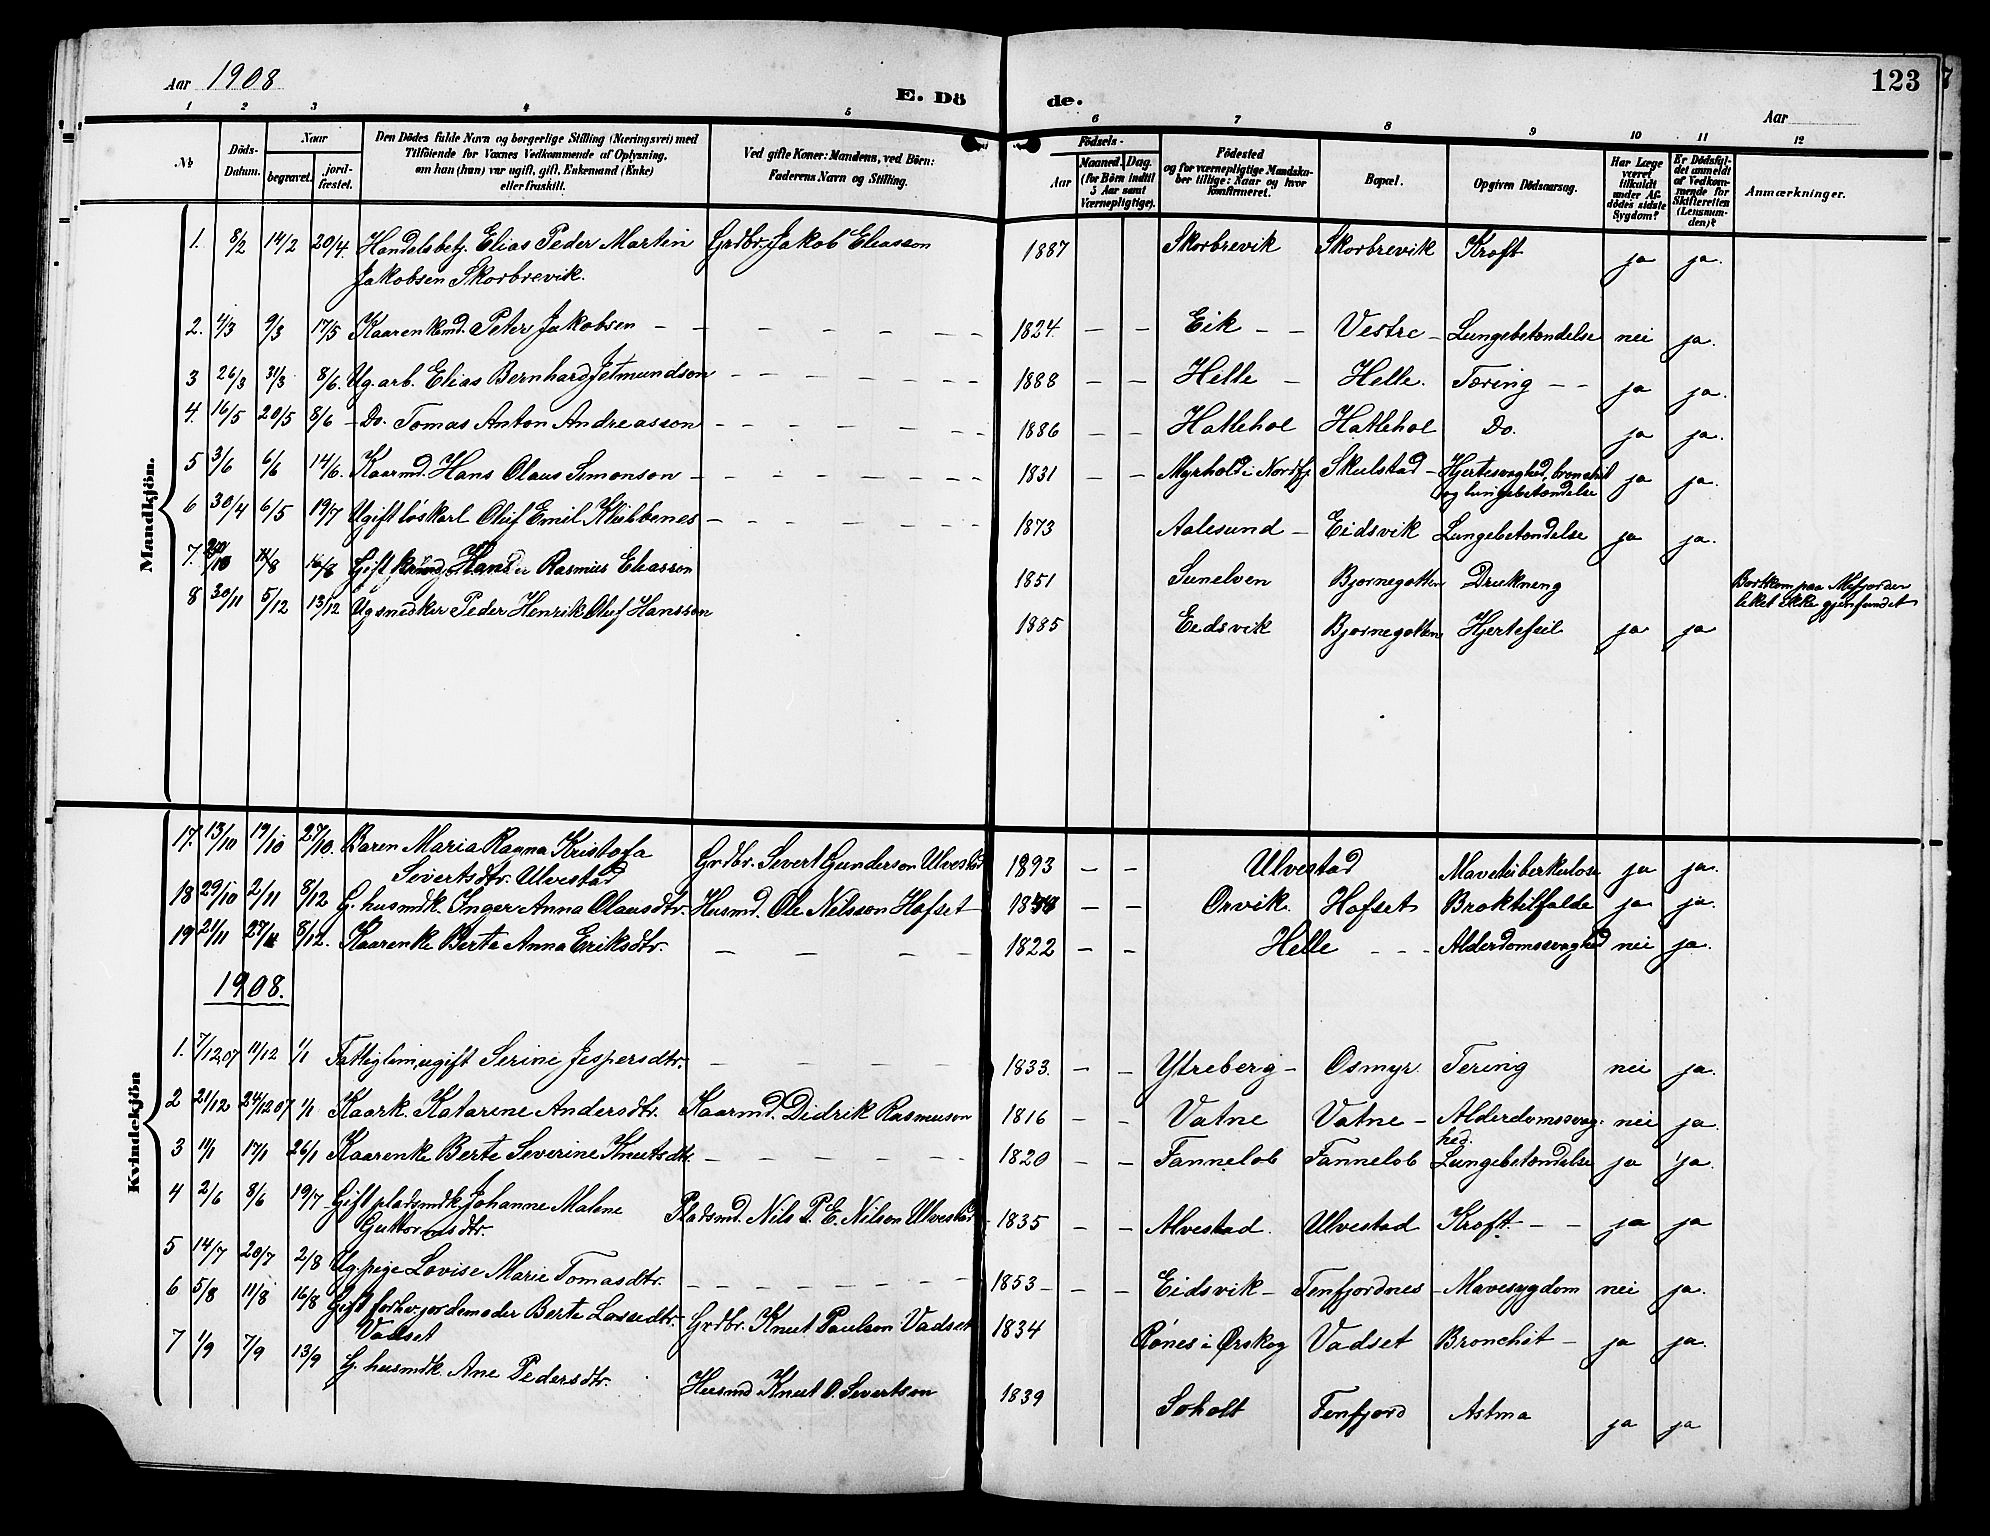 Aar 1908
E. Dö de.
123
Aar
1 2 3 4 5 6 7 8 9 10 11 12
No
Döds-Datum.
Naar
begravet.
jord-fæstet.
Den Dödes fulde Navn og borgerlige Stilling (Næringsvei) med
Tilföiende for Voxnes Vedkommende af Oplysning,
om han (hun) var ugift, gift, Enkemand (Enke)
eller fraskilt.
Ved gifte Koner: Mandens, ved Börn:
Faderens Navn og Stilling.
Födsels-
Aar
Maaned. Dag.
(for Börn indtil
5 Aar samt
Værnepligtige).
Födested
og for værnepligtige Mandska-
ber tillige: Naar og hvor
konfirmeret.
Bopæl.
Opgiven Dödsaarsag.
Har Læge
været
tilkaldt
under Af-
dödes sidste
Sygdom?
Er Dödsfal-
det anmeldt
af Vedkom-
mende for
Skifteretten
(Lensman-
den)?
Anmærkninger.
Mandkjön.
1. 8/2 14/2 20/4 Handelsbetj. Elias Peder Martin Grdbr. Jakob Eliasson 1887 Skorbrevik Skorbrevik Kræft ja ja.
Jakobsen Skorbrevik.
2. 4/3 9/3 17/5 Kaarenkemd. Peter Jakobsen — — — — — — 1824. — — Eik — — Vestre — Lungebetændelse nei ja.
3 26/3 31/3 8/6. Ug. arb. Elias Bernhard Jetmundson — — — — — 1888 — — Helle — Helle. Tæring — — ja ja.
4. 16/5 20/5 8/6 — Do. Tomas Anton Andreasson — — — — — 1886 — — Hatlehol Hatlehol Do. ja ja.
5 3/6 6/6 14/6. Kaarmd. Hans Olaus Simonson — — — — — 1831 — — Myrhold i Nordfj Skulstad — Hjertesvaghed, bronchit ja ja.
og lungebetændelse
6 30/4 6/5 19/7 Ugift löskarl Oluf Emil Klubbenes — — — — — 1873 Aalesund — Eidsvik Lungebetændelse ja ja.
7. 16/8 Gift Hans Rasmus Eliasson 1851 Sunelven Bjornegotten Drukning
Bortkom paa
liket ikke gjenfundet
8 30/11 5/12 13/12 Ug snedker Peder Henrik Oluf Hansson 1885 Eidsvik Bjornegotten Hjertefeil ja ja
Kvindekjön
17. 13/10 19/10 27/10. Karen Maria Ragna Kristofa Grdbr. Severt Gunderson Ulvestad 1893 — — Ulvestad Mavetuberkulose ja ja.
Severtsdtr. Ulvestad
18 29/10 2/11 8/12 G. husmdk. Inger Anna Olausdtr. Husmd. Ole Nilsson Hofset — — Orvik. Hofset Broktilfælde ja ja.
19 21/11 27/11 8/12. Kaarenke Berte Anna Eriksdtr. — — — — 1822 — — Helle — — — Alderdomssvaghed nei ja.
1908.
1. 7/12 07 11/12 1/1 Fattiglem, ugift Serine Jespersdtr. — — — — 1833. — — Ytreberg — Osmyr Tering nei ja.
2 21/12 24/12 07 1/1 Kaark. Katarine Andersdtr. Kaarmd. Didrik Rasmuson 1816 — — Vatne Vatne — Alderdomssvag- nei ja.
hed.
3 11/1 17/1 26/1 Kaarenke Berte Severine Knutsdtr. — — — — — 1820 — — Fannelob Fannelob Lungebetændelse ja ja.
4 2/6 8/6 19/7 Gift pladsmdk. Johanne Malene Pladsmd. Nils P. E. Nilson Ulvestad 1835 — — Alvestad. Ulvestad Kræft. — — ja ja
Guttormsdtr.
5 14/7 20/7 2/8 Ug. pige Lovise Marie Tomasdtr. — — — — — 1853 — — — Eidsvik — Tenfjordnes — Mavesygdom nei ja.
6 5/8 11/8 16/8 Gift forhv. jordemoder Berte Lassedtr. Grdbr. Knut Paulson Vadset 1834 Rönes i Ørskog Vadset Bronchit — ja ja.
Vadset
7 1/9 7/9 13/9 G. husmdk. Ane Pedersdtr. Husmd Knut O. Severtson 1839 Soholt Tenfjord Astma ja ja